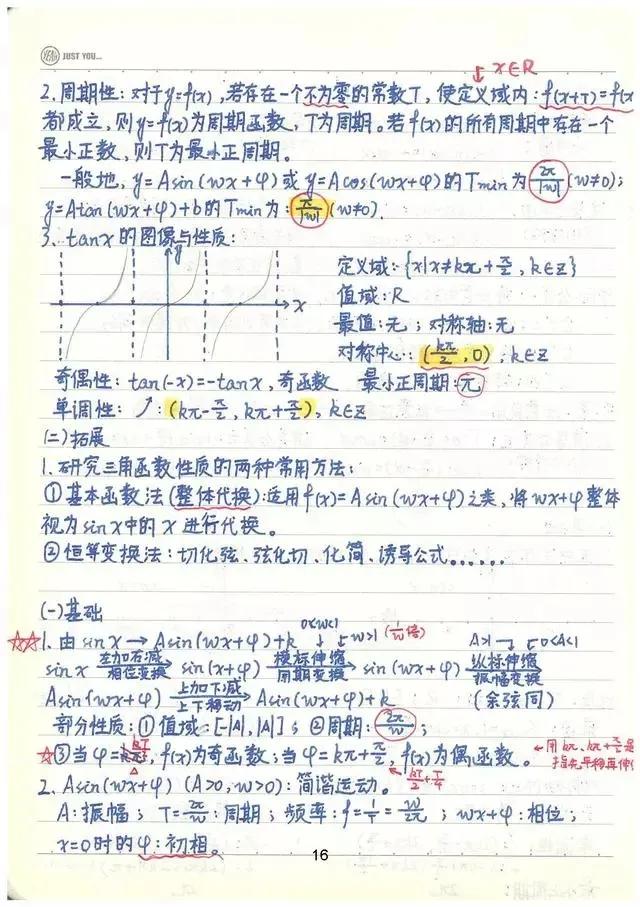 YEAH JUST YOU...
x∈R
2.周期性:对于y=f(x),若存在一个不为零的常数T,使定义域内:f(x+T)=f(x
都成立,则y=f(x)为周期函数,T为周期。若f(x)的所有周期中存在一个
最小正数,则T为最小正周期。
一般地,y=Asin(wx+φ)或y=Acos(wx+φ)的Tmin为2π/|w|(w≠0);
y=Atan(wx+φ)+b的Tmin为:π/|w|(w≠0).
3.tanx的图像与性质:
y
x
定义域:{x|x≠kπ+π/2,k∈Z}
值域:R
最值:无;对称轴:无
对称中心:(kπ/2,0),k∈Z
奇偶性:tan(-x)=-tanx,奇函数 最小正周期:π
单调性:↗(kπ-π/2,kπ+π/2),k∈Z
(二)拓展
1.研究三角函数性质的两种常用方法:
①基本函数法(整体代换):运用f(x)=Asin(wx+φ)之类,将wx+φ整体
视为sinx中的x进行代换。
②恒等变换法:切化弦、弦化切、化简、诱导公式......
(一)基础
0<w<1
☆☆1.由sinx→Asin(wx+φ)+k ↓ w>1(1/w倍) A>1 0<A<1
sinx 左加右减 相位变换→ sin(x+φ) 横标伸缩 周期变换→ sin(wx+φ) 纵标伸缩 振幅变换→
Asin(wx+φ) 上加下减 上下移动→ Asin(wx+φ)+k (余弦同)
部分性质:①值域:[-|A|,|A|];②周期:2π/w;
☆③当φ=kπ,f(x)为奇函数;当φ=kπ+π/2,f(x)为偶函数。 ←用kπ、kπ+π/2是
kT/2
指先平移再伸
kT/2+T/4
2.Asin(wx+φ)(A>0,w>0):简谐运动。
A:振幅;T=2π/w:周期;频率:f=1/T=w/2π;wx+φ:相位;
x=0时的φ:初相。
16